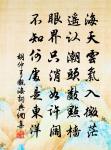 海天雲氣入微茫
遙認潮頭數點檣
眼界只消如許闊
不知何處是東洋
胡仲弓觀海詩